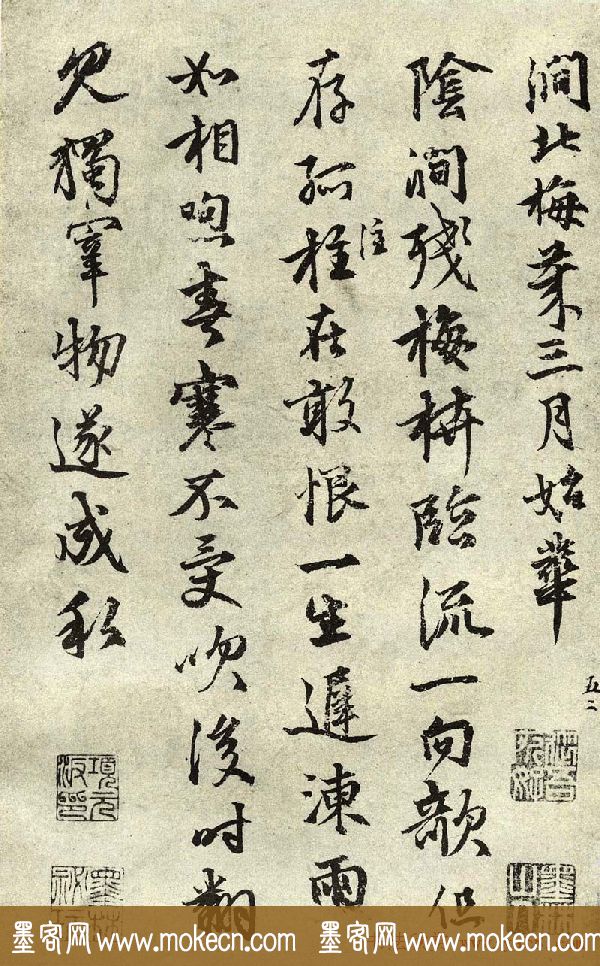 澗北梅三月始華
五二
陰澗殘梅枿臨流一向欹但
存孤在敢恨一生遲凍雨
如相喣春寒不受吹後時翻
見獨羣物遂成私
項元汴印
墨客网 www.mokecn.com 墨客网 www.mokecn.com